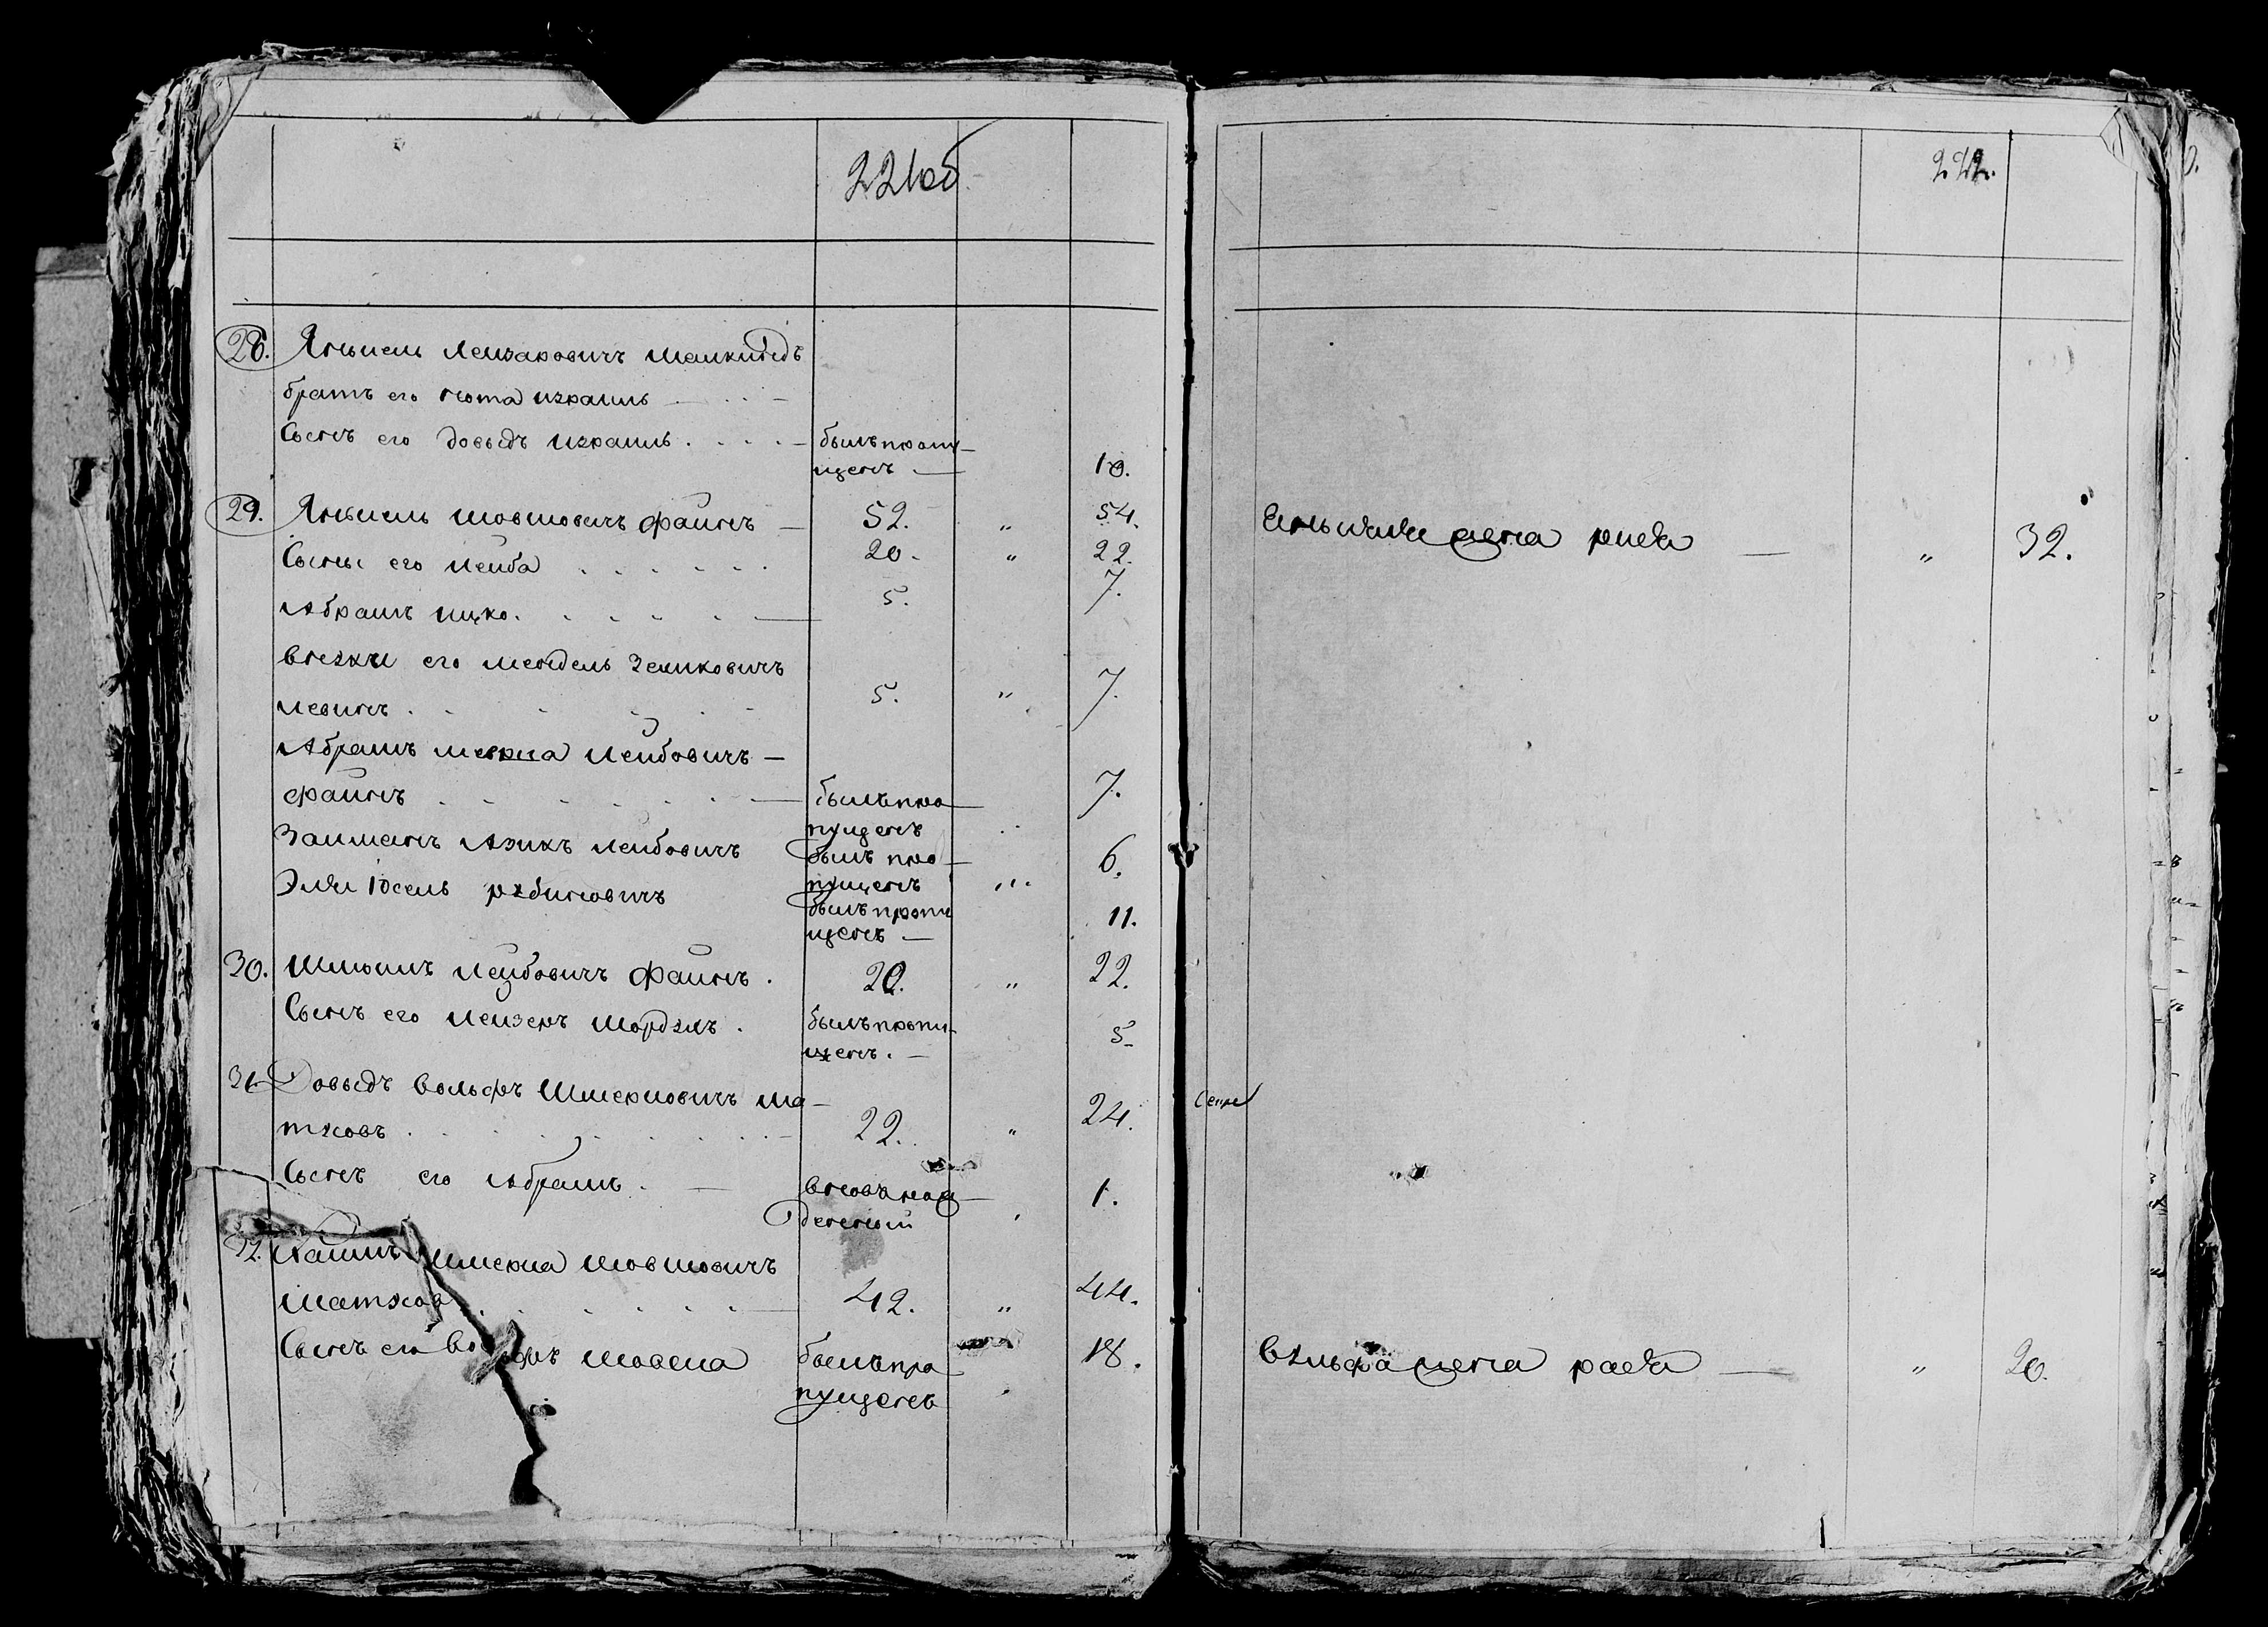 221об
28. Янкель Лейзаровичъ
братъ его нота израиль
Сынъ его Довыдъ израиль . . . . был пропу
щенъ — 10.
29. Янкель Мовшовичъ файнъ — 52. „ 54.
Сыны его Лейба . . . . . . 20. „ 22.
Абрамъ ицко. . . . . . — 5. 7.
Внуки его Мендель Зеликовичъ
левинъ . . . . . 5. „ 7.
Абрамъ Лейбовичъ —
файнъ . . . . . . — былъ про
пущенъ 7.
Залманъ Айзикъ Лейбовичъ былъ про
пущенъ „ 6.
Эля Іосель рубиновичъ былъ пропу
щенъ — 11.
30. Шлюмъ Лейбовичъ файнъ . 20. „ 22.
Сынъ его Лейзеръ Мордхъ . былъ пропу
щенъ. — 5
31. Довыдъ Вольфъ Шмерковичъ ма—
тусовъ . . . . . . . . — 22. „ 24.
Сынъ его Абрамъ . — вновь рож
денный 1.
32. Хаимъ Шмерка Мовшовичъ
Матусов . . . . . — 42. „ 44.
Сынъ его Вольфъ Мовша былъ про
пущенъ 18.
222.
жена — „ 32.
Вульфа жена — „ 20.